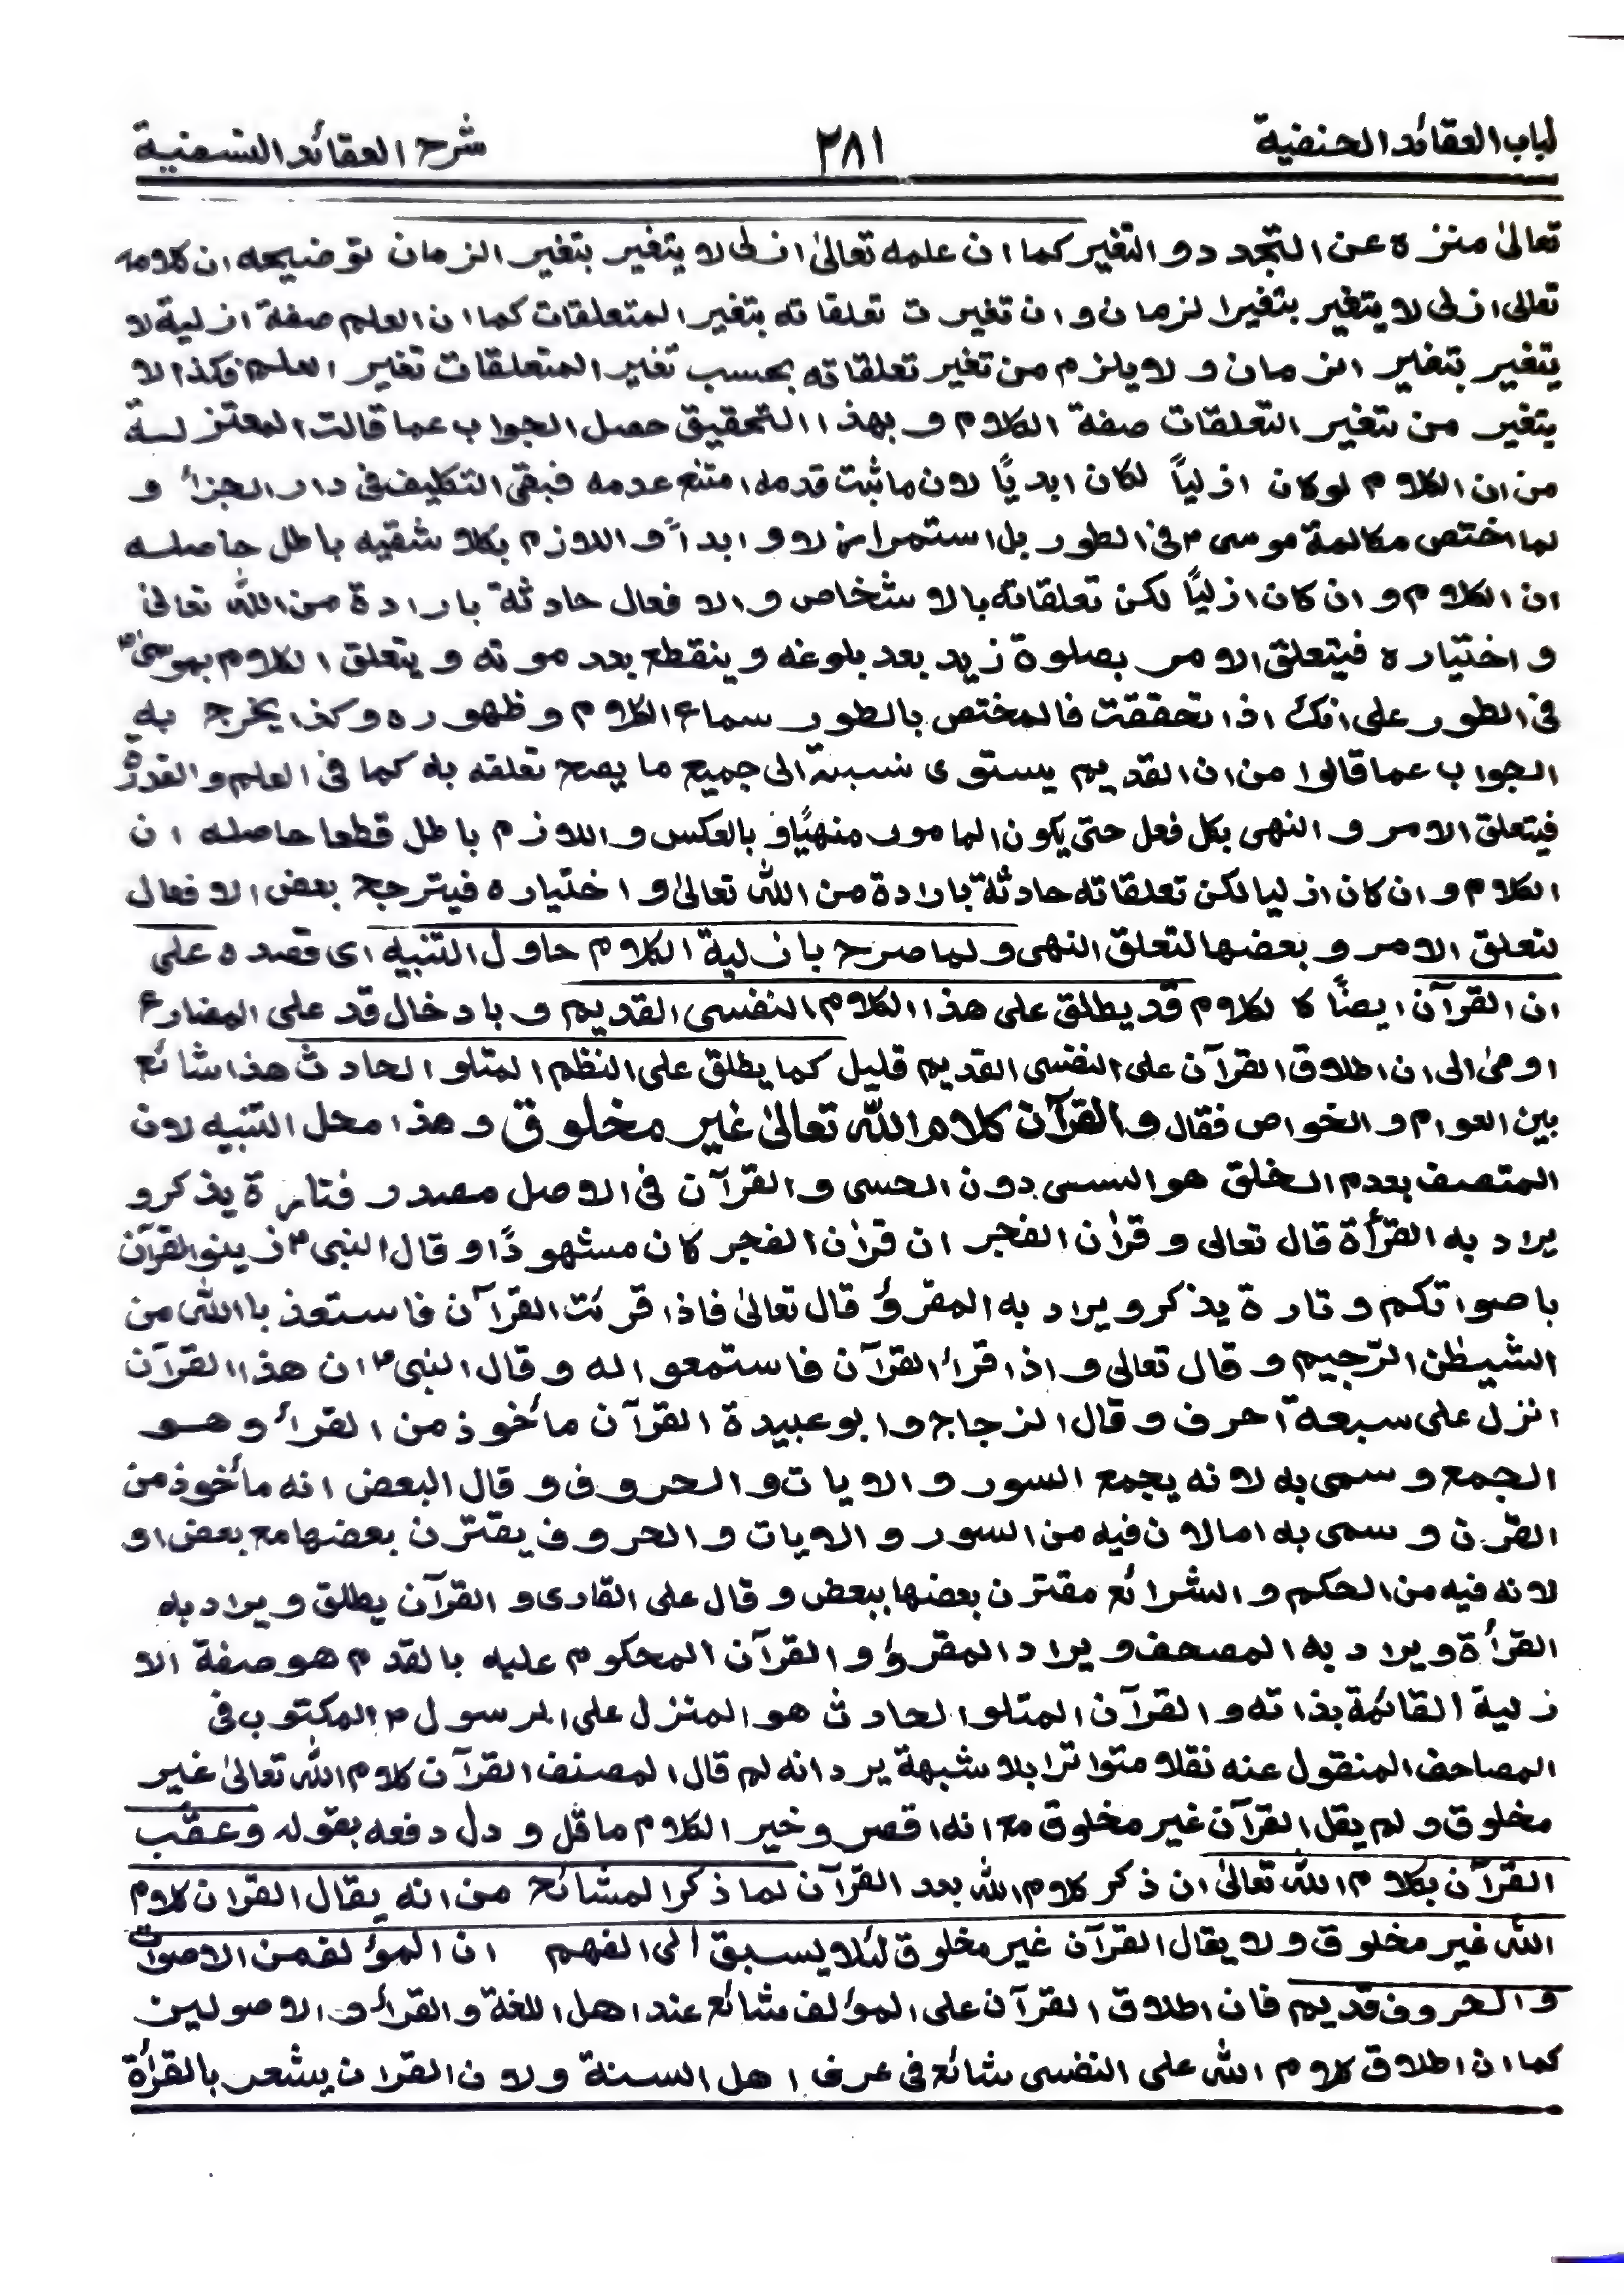 لباب العقائد الحنفية
٣٨١
شرح العقائد النسفية
تعالىٰ منزه عن التجدد و التغير كما ان علمه تعالىٰ ازلى لا يتغير بتغير الزمان توضيحه ان كلامه
تعالى ازلى لا يتغير بتغير الزمان و ان تغيرت تعلقاته بتغير المتعلقات كما ان العلم صفة ازلية لا
يتغير بتغير الزمان و لا يلزم من تغير تعلقاته بحسب تغير المتعلقات تغير العلم فكذا لا
يتغير من تغير التعلقات صفة الكلام و بهذا التحقيق حصل الجواب عما قالت المعتزلسة
من ان الكلام لو كان ازلياً لكان ابدياً لان ما ثبت قدمه امتنع عدمه فبقى التكليف فى دار الجزاء و
لما اختص مكالمة موسى ؑ فى الطور بل استمر ازلا و ابداً و اللازم بكلا شقيه باطل حاصله
ان الكلام و ان كان ازلياً لكن تعلقاته بالاشخاص و الافعال حادثة بارادة من الله تعالىٰ
و اختياره فيتعلق الامر بصلوة زيد بعد بلوغه و ينقطع بعد موته و يتعلق الكلام بموسىٰ ؑ
فى الطور على انك اذا تحققت فالمختص بالطور سماع الكلام و ظهوره و كذا يخرج به
الجواب عما قالوا من ان القديم يستوى نسبته الى جميع ما يصح تعلقه به كما فى العلم و القدرة
فيتعلق الامر و النهى بكل فعل حتى يكون المامور منهياً و بالعكس و اللازم باطل قطعا حاصله ان
الكلام و ان كان ازليا لكن تعلقاته حادثة بارادة من الله تعالىٰ و اختياره فيترجح بعض الافعال
لتعلق الامر و بعضها لتعلق النهى و لما صرح بازلية الكلام حاول التنبيه اى قصده على
ان القرآن ايضاً كالكلام قد يطلق على هذا الكلام النفسى القديم و بادخال قد على المضارع
اومىٰ الى ان اطلاق القرآن على النفسى القديم قليل كما يطلق على النظم المتلو الحادث هذا شائع
بين العوام و الخواص فقال و القرآن كلام الله تعالىٰ غير مخلوق و هذا محل التنبيه لان
المتصف بعدم الخلق هو النفسى دون الحسى و القرآن فى الاصل مصدر فتارة يذكر و
يراد به القرأة قال تعالى و قرأن الفجر ان قرأن الفجر كان مشهوداً و قال النبى ؐ زينو القرآن
باصواتكم و تارة يذكر و يراد به المقروُ قال تعالىٰ فاذا قرئت القرآن فاستعذ باالله من
الشيطٰن الرّجيم و قال تعالى و اذا قراء القرآن فاستمعو اله و قال النبى ؐ ان هذا القرآن
انزل على سبعة احرف و قال الزجاج و ابو عبيدة القرآن مأخوذ من القراء و هو
الجمع و سمى به لانه يجمع السور و الايات و الحروف و قال البعض انه مأخوذ من
القرن و سمى به اما لان فيه من السور و الايات و الحروف يقترن بعضها مع بعض او
لانه فيه من الحكم و الشرائع مقترن بعضها ببعض و قال على القارى و القرآن يطلق و يراد به
القرأة و يراد به المصحف و يراد المقروُ و القرآن المحكوم عليه بالقدم هو صفة الا
زلية القائمة بذاته و القرآن المتلو الحادث هو المنزل على الرسول ؐ المكتوب فى
المصاحف المنقول عنه نقلا متواترا بلا شبهة يرد انه لم قال المصنف القرآن كلام الله تعالىٰ غير
مخلوق و لم يقل القرآن غير مخلوق مع انه اقصر و خير الكلام ما قل و دل دفعه بقوله و عقّب
القرآن بكلام الله تعالىٰ ان ذكر كلام الله بعد القرآن لما ذكر المشائخ من انه يقال القران كلام
الله غير مخلوق و لا يقال القرآن غير مخلوق لئلا يسبق الى الفهم ان المؤلف من الاصوات
و الحروف قديم فان اطلاق القرآن على المؤلف شائع عند اهل اللغة و القراء و الاصولين
كما ان اطلاق كلام الله على النفسى شائع فى عرف اهل السنة و لان القران يشعر بالقرأة